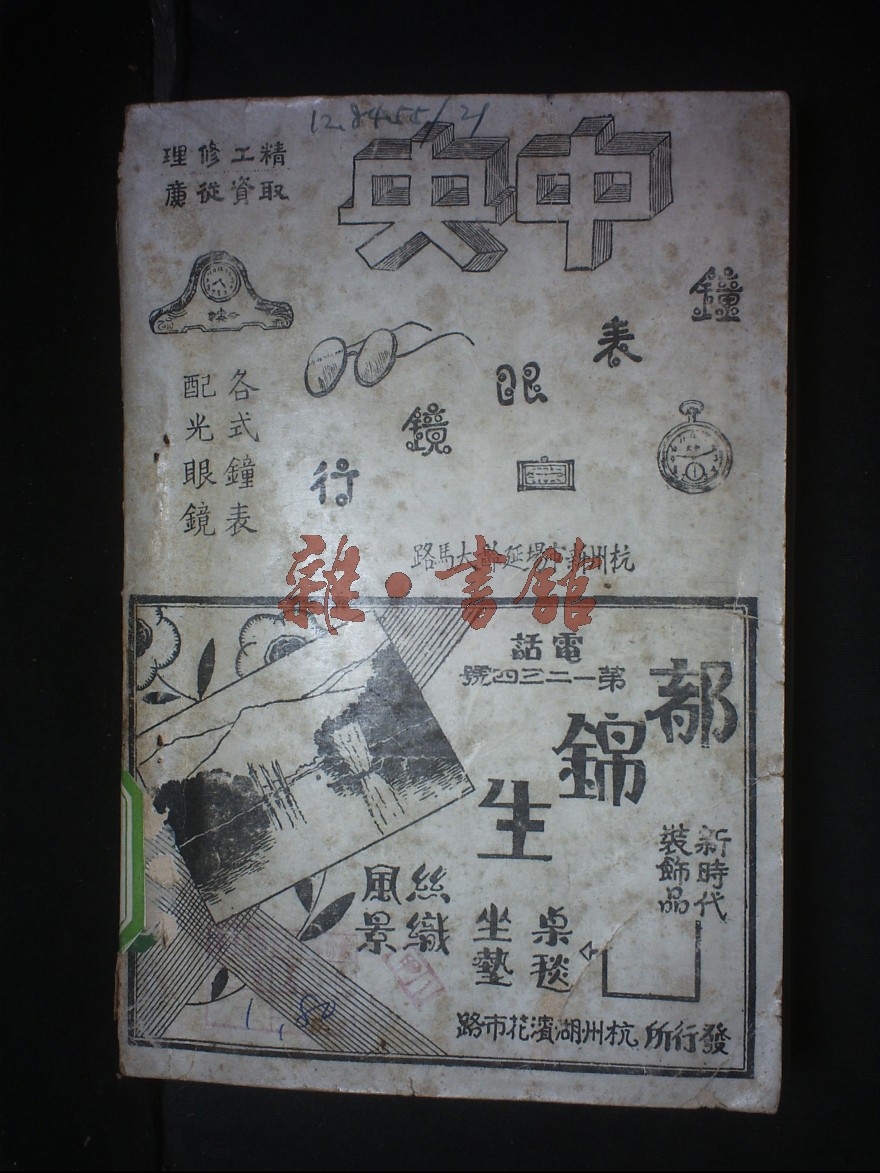 12.84.55/21
中央
精工修理
取資從廣
鐘表眼鏡行
各式鐘表
配光眼鏡
杭州新市場延齡大馬路
雜·書館
電話
第一二三四號
都錦生
新時代
裝飾品
絲織
風景
桌毯
坐墊
發行所 杭州湖濱花市路
1.80